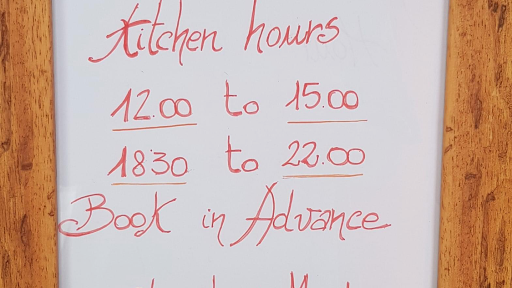 Kitchen hours
12.00 to 15.00
1830 to 22.00
Book in Advance